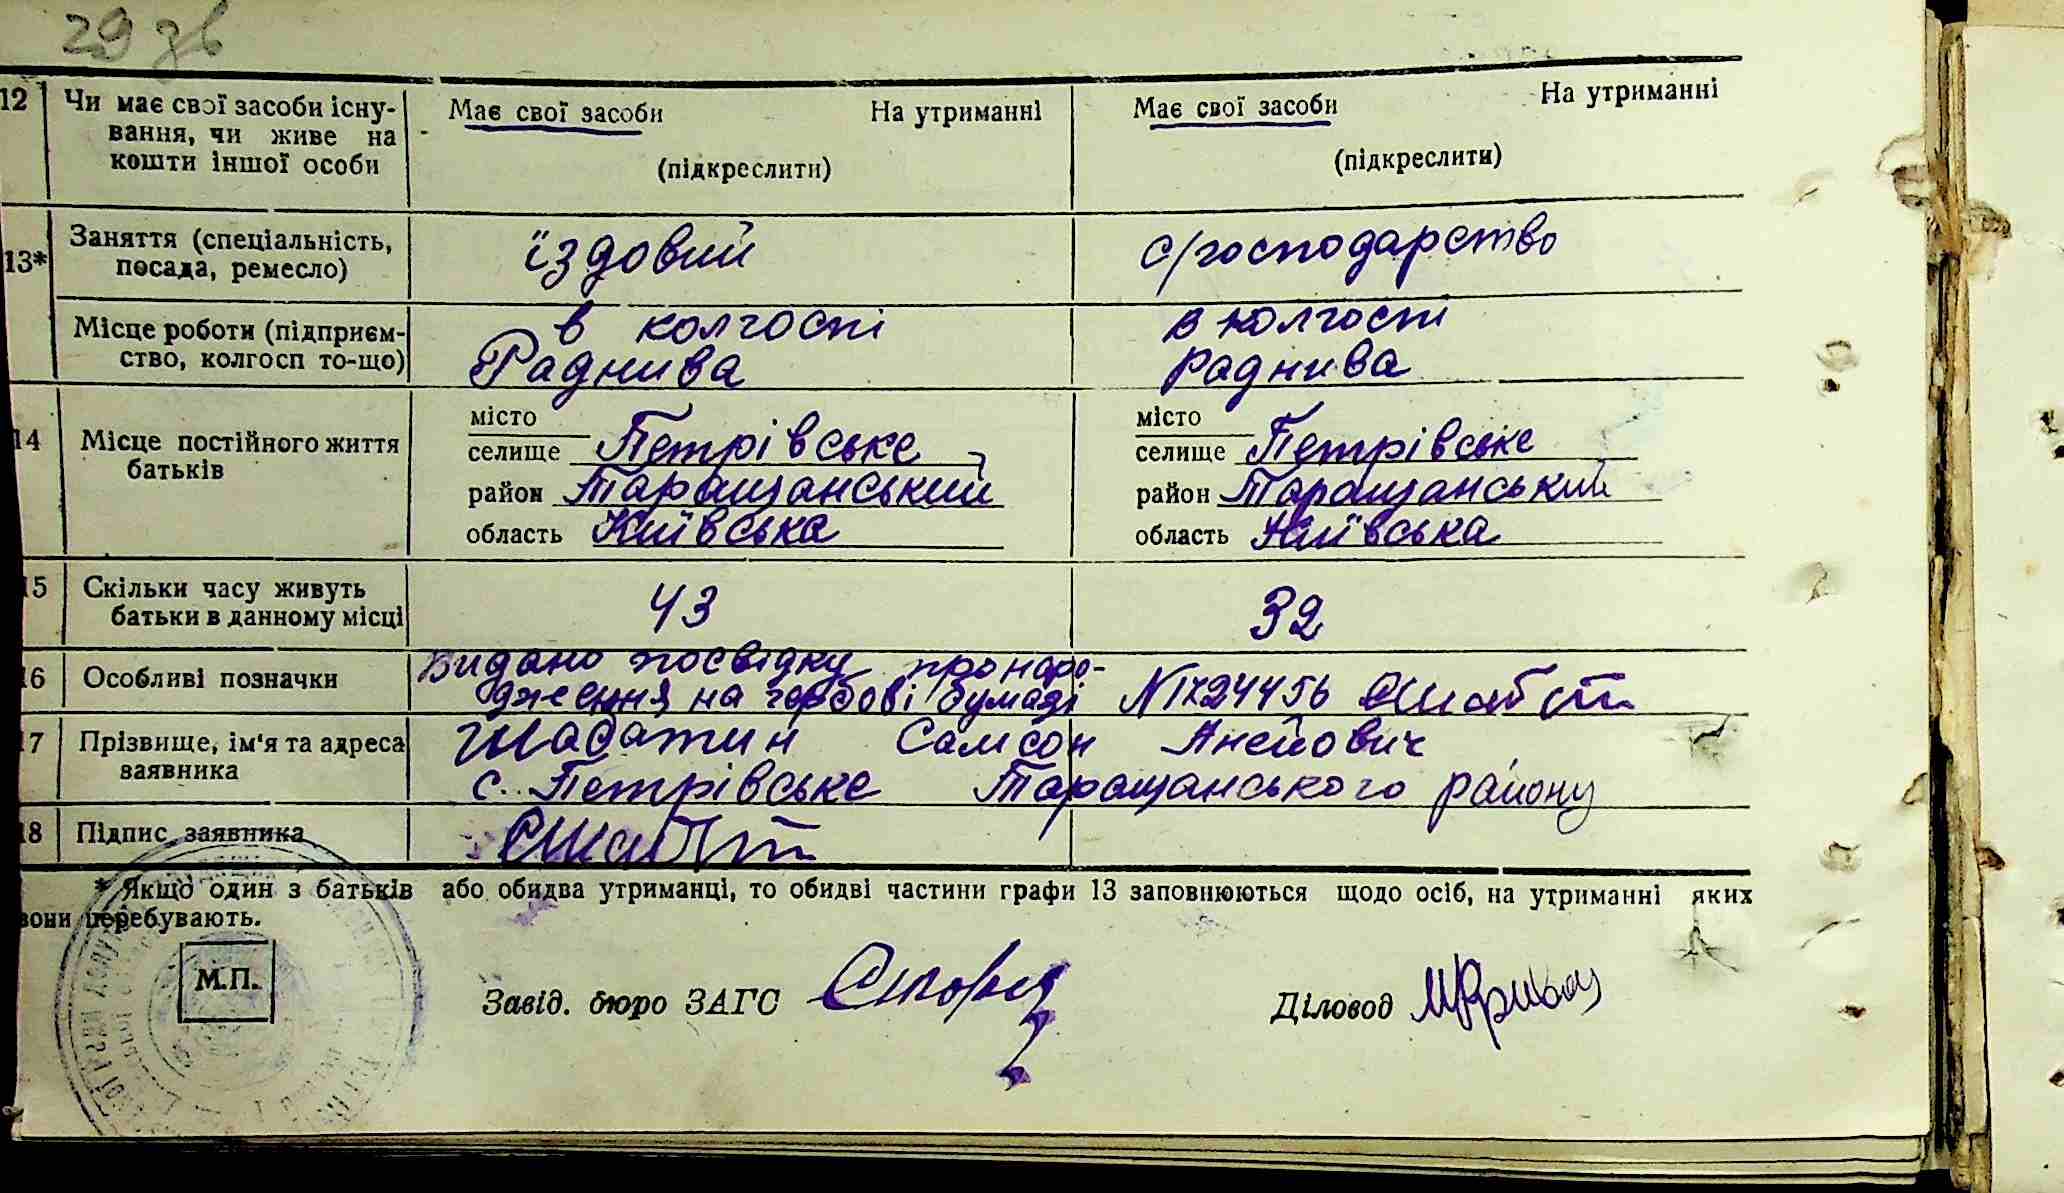 29 зв
12 Чи має свої засоби існу- Має свої засоби На утриманні Має свої засоби На утриманні
вання, чи живе на
кошти іншої особи (підкреслити) (підкреслити)
13* Заняття (спеціальність, їздовий с/господарство
посада, ремесло)
Місце роботи (підприєм- в колгоспі в колгоспі
ство, колгосп то-що) Раднива раднива
місто місто
14 Місце постійного життя селище Петрівське селище Петрівське
батьків район Таращанський район Таращанський
область Київська область Київська
15 Скільки часу живуть 43 32
батьки в данному місці
16 Особливі позначки Видано посвідку про наро-
дження на гербові бумазі
17 Прізвище, ім'я та адреса Самсон
заявника с. Петрівське Таращанського району
18 Підпис заявника
* Якщо один з батьків або обидва утриманці, то обидві частини графи 13 заповнюються щодо осіб, на утриманні яких
вони перебувають.
М.П.
Завід. бюро ЗАГС Діловод